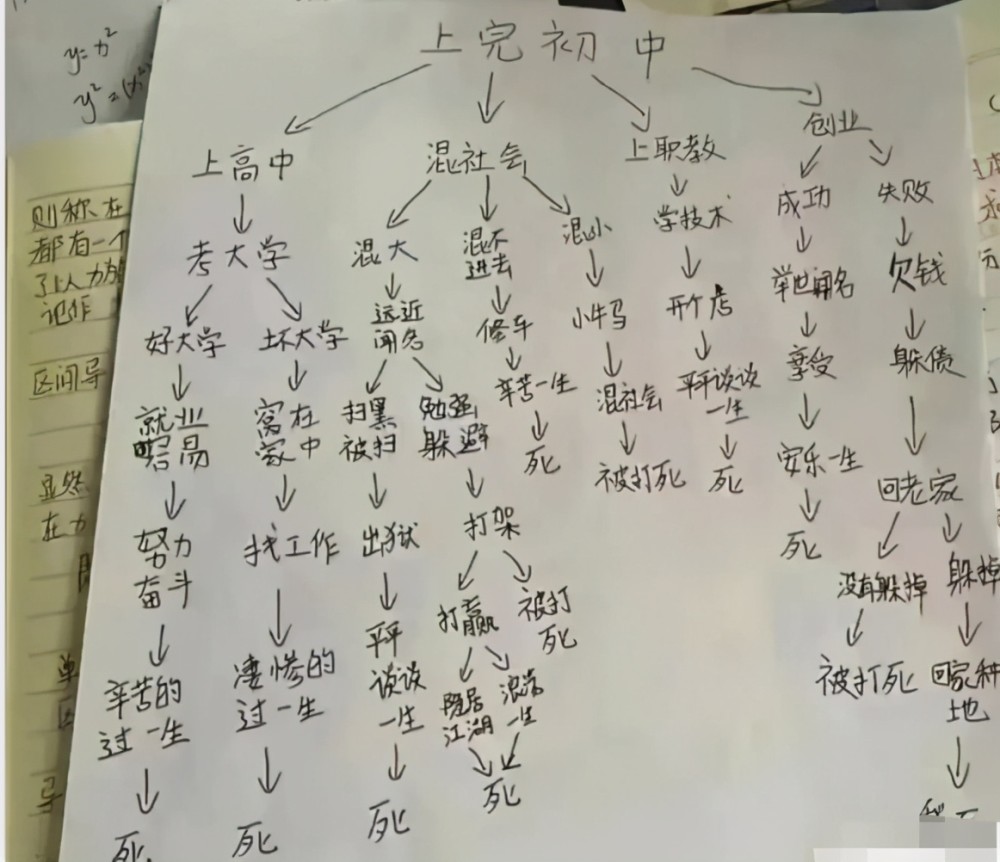 上完初中
上高中
混社会
上职教
创业
考大学
混大
混不
进去
混小
学技术
成功
失败
好大学
坏大学
远近
闻名
修车
小牛马
开个店
举世闻名
欠钱
就业
容易
窝在
家中
扫黑
被扫
勉强
躲避
辛苦一生
混社会
平平谈谈
一生
享受
躲债
死
被打死
死
安乐一生
回老家
努力
奋斗
找工作
出狱
打架
死
没有躲掉
躲掉
打赢
被打
死
辛苦的
过一生
凄惨的
过一生
平平
谈谈
一生
隐居
江湖
浪荡
一生
被打死
回家种
地
死
死
死
死
y=x²
y²=(x²)
则称在
都有一个
记作
区间导
显然
在力
单
区
导